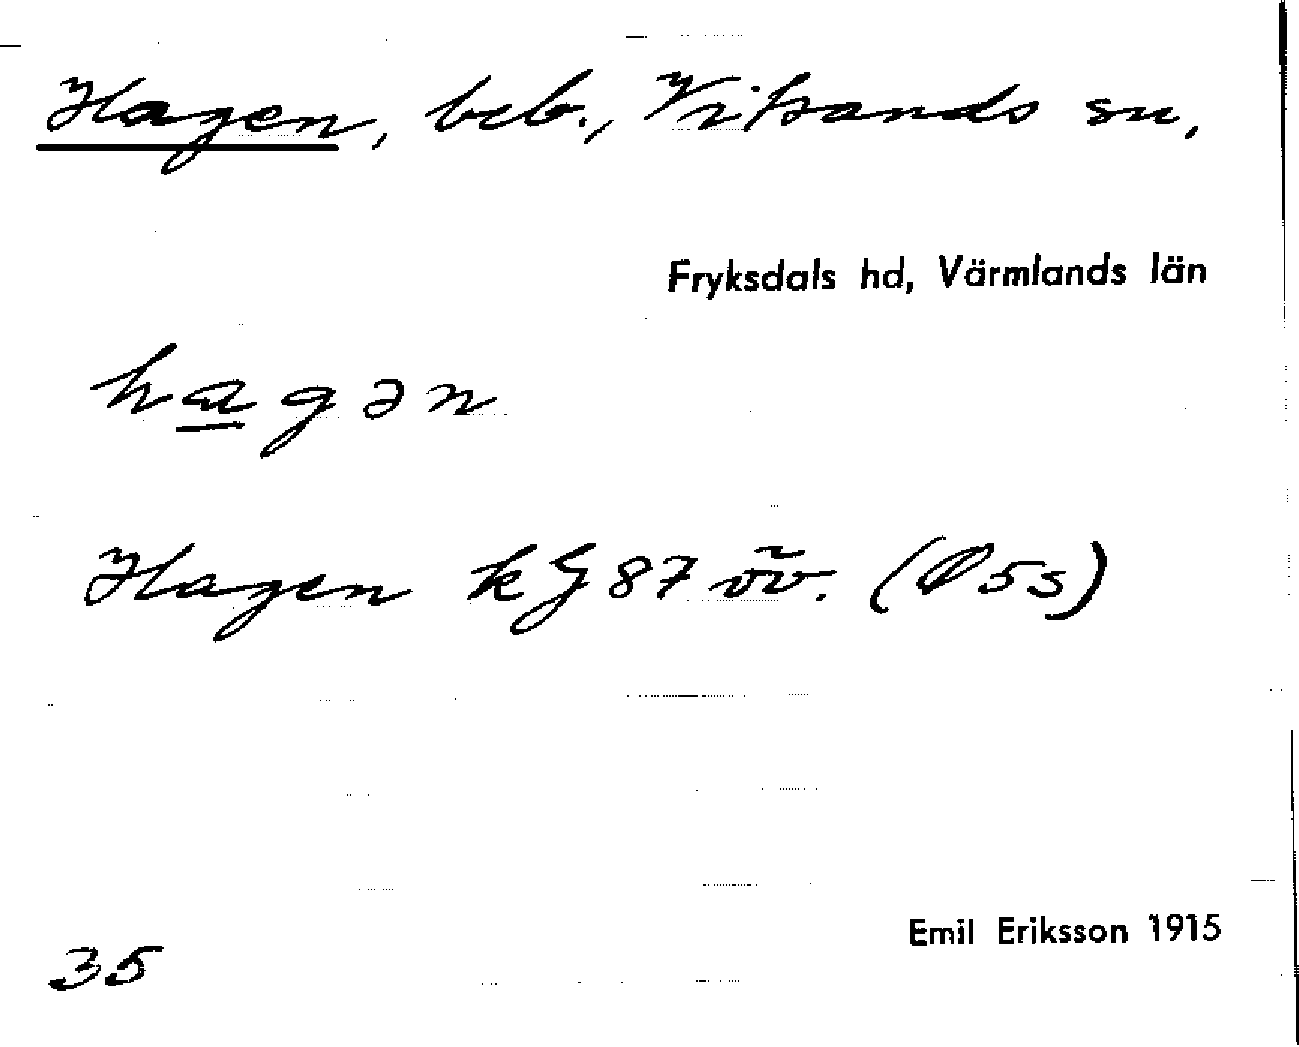 Hagen, beb., Vitsands sn,
Fryksdals hd, Värmlands län
hagən
Hagen kG 87 öv. (Ö 5s)
Emil Eriksson 1915
35